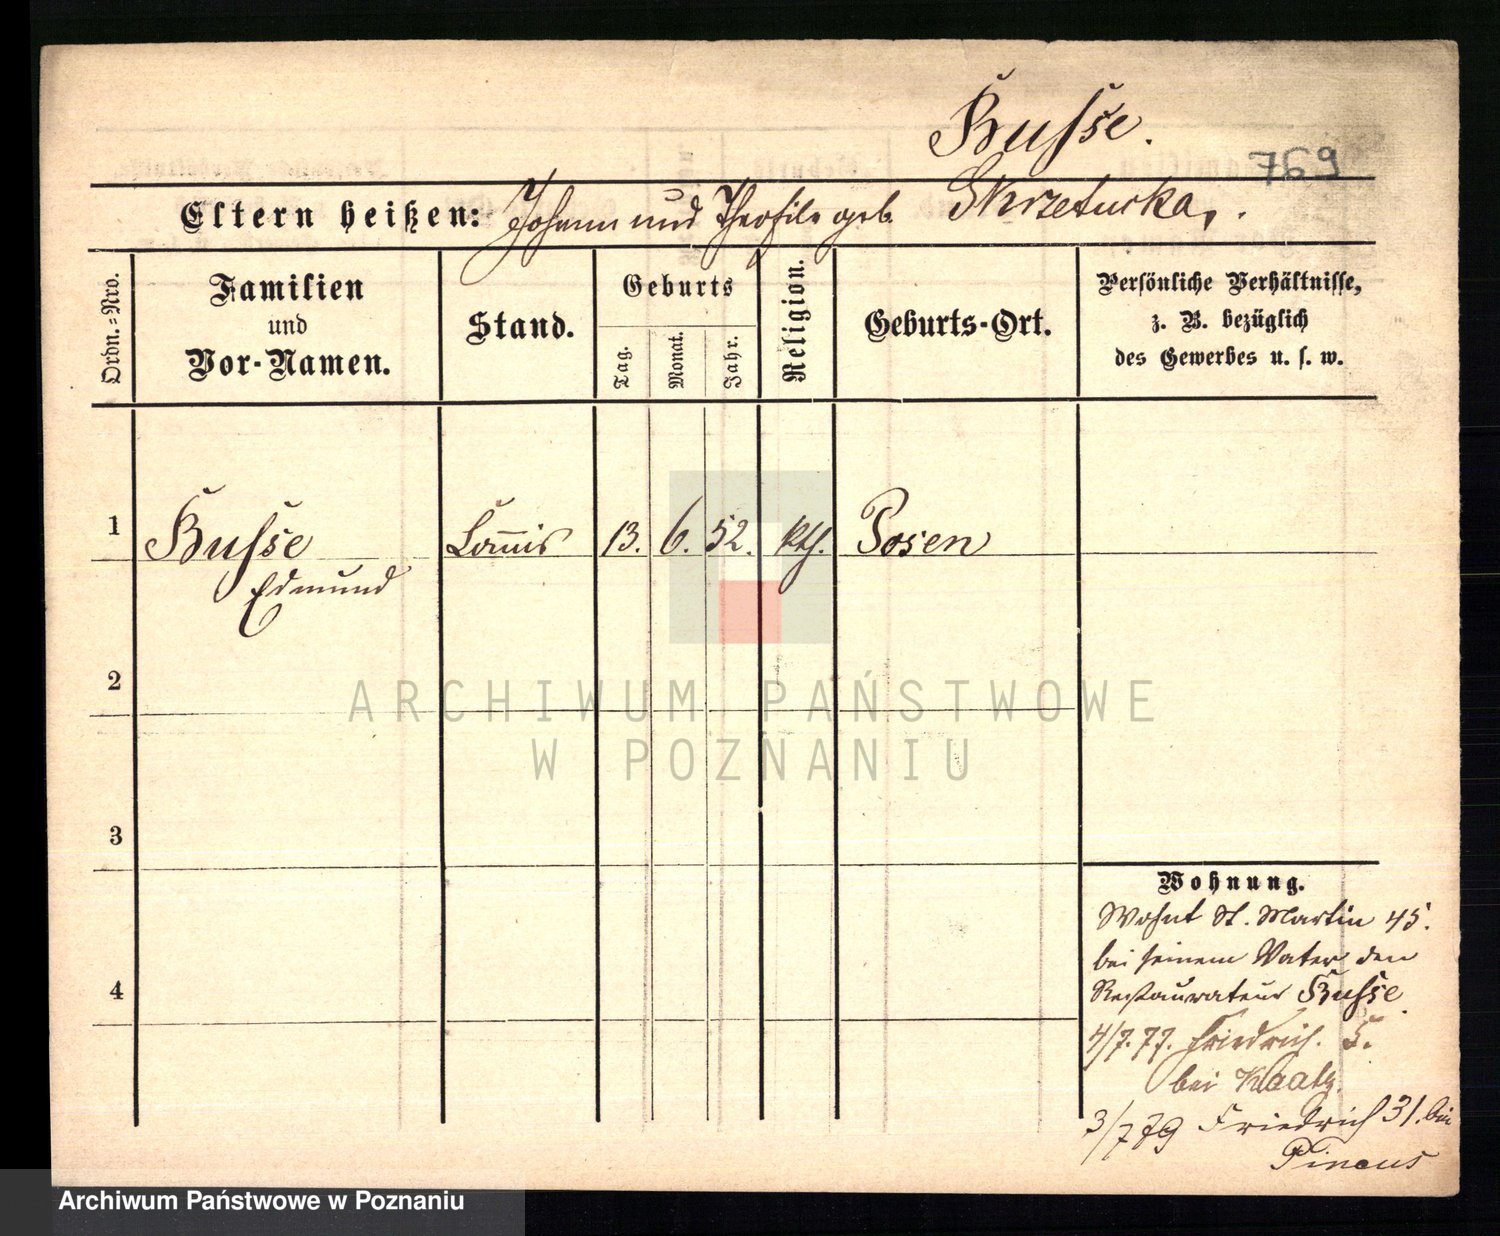 Busse.
769
Eltern heißen: Johann und Theofile geb. Skrzetucka.
Ordn.=Nro.
Familien
und
Vor-Namen.
Stand.
Geburts
Tag.
Monat.
Jahr.
Religion.
Geburts-Ort.
Persönliche Verhältnisse,
z. B. bezüglich
des Gewerbes u. s. w.
1
Busse
Edmund
Commis
13. 6. 52. kth. Posen
2
ARCHIWUM PAŃSTWOWE
W POZNANIU
3
4
Wohnung.
Wohnt St. Martin 45.
bei seinem Vater den
Restaurateur Busse
4/7. 77. Friedrich. 5.
bei Kaatz.
3/7 79 Friedrich 31. bei
Pincus
Archiwum Państwowe w Poznaniu